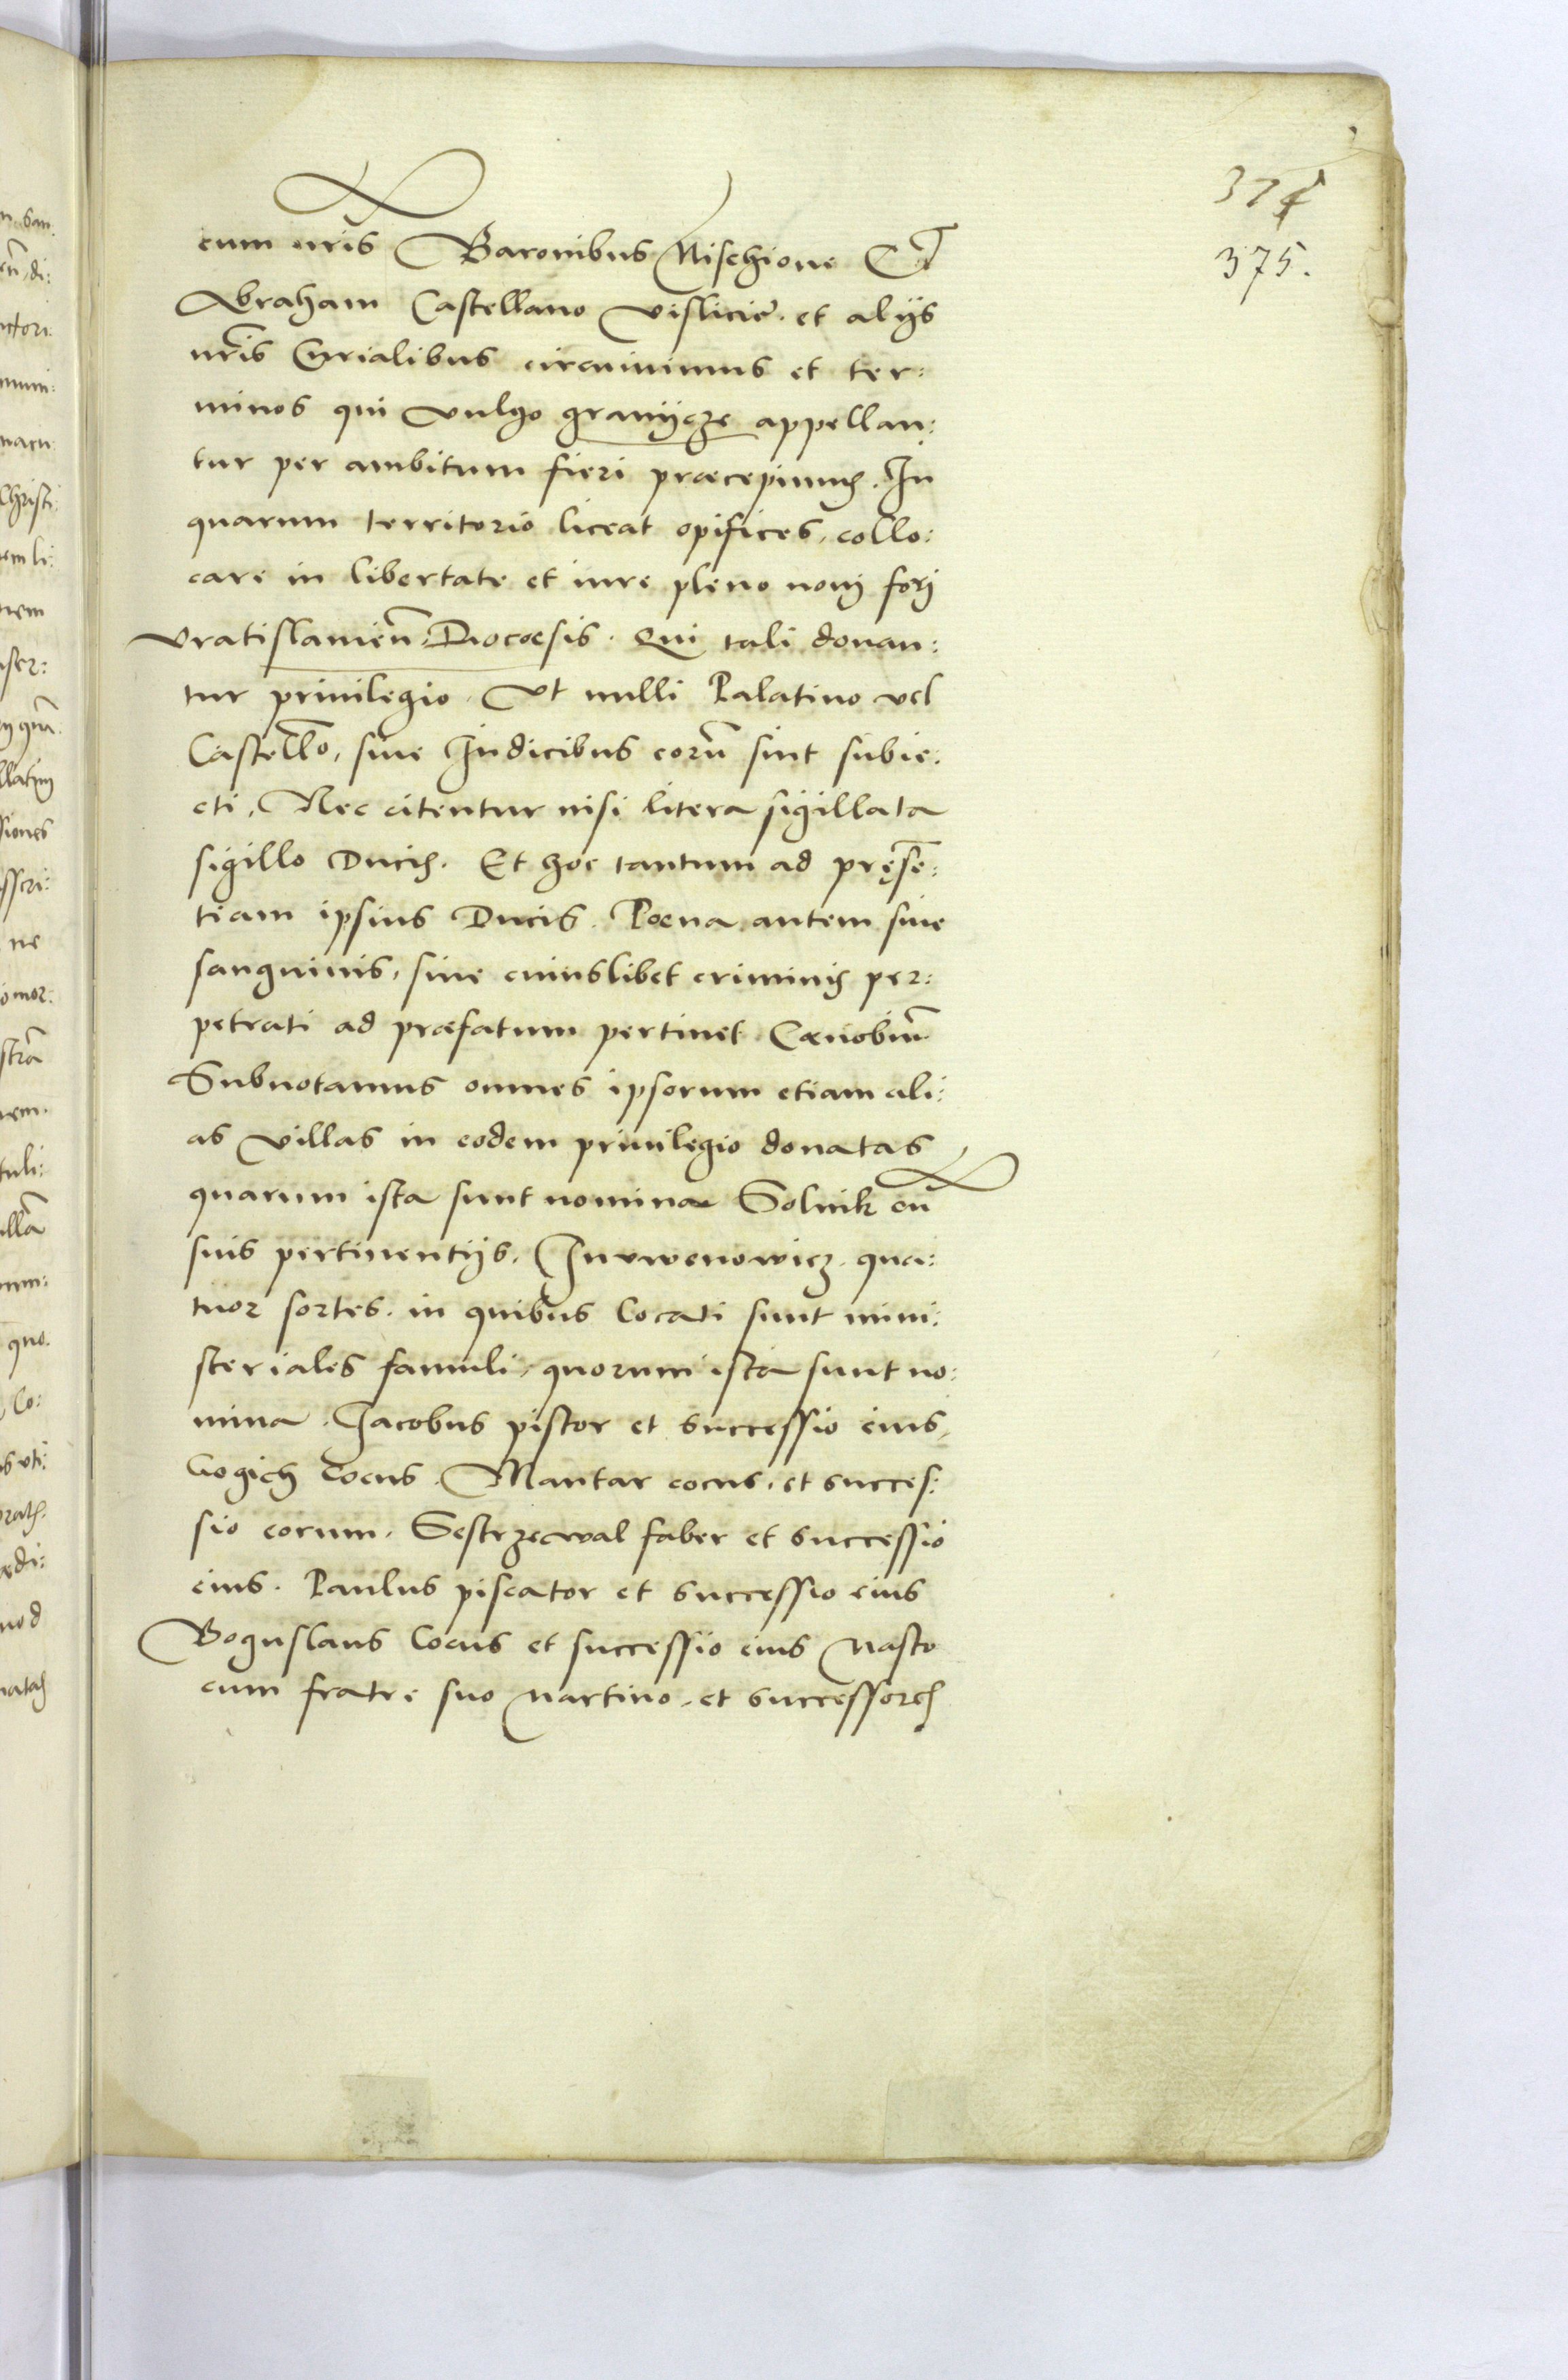 374
375.
cum nr̃is Baronibus Mischione Et
Abraham Castellano Vislicien̄. et alijs
nr̃is Curialibus circuiuimus et ter:
minos qui vulgo granijcze appellan:
tur per ambitum fieri præcepimus. In
quarum territorio liceat opifices, collo:
care in libertate et iure pleno noui fori
Vratislauien̄: Diocoesis. Qui tali donan:
tur priuilegio. Vt nulli Palatino vel
Castell̄o, siue Iudicibus eorū sint subie:
cti. Nec citentur nisi litera sigillata
sigillo Ducis. Et hoc tantum ad pręsē:
tiam ipsius Ducis. Poena autem siue
sanguinis, siue cuiuslibet criminis per:
petrati ad præfatum pertinet Cœnobiū
Subnotamus omnes ipsorum etiam ali:
as villas in eodem priuilegio donatas
quarum ista sunt nomina Solnik cū
suis pertinentijs. Invwenowicz. qua:
tuor sortes. in quibus locati sunt mini:
steriales famuli, quorum ista sunt no:
mina. Iacobus pistor et successio eius,
Gogich Cocus. Mantar cocus. et succes:
sio eorum. Sestrzewal faber et successio
eius. Paulus piscator et successio eius
Boguslaus Cocus et successio eius Nasto
cum fratre suo Martino. et successores